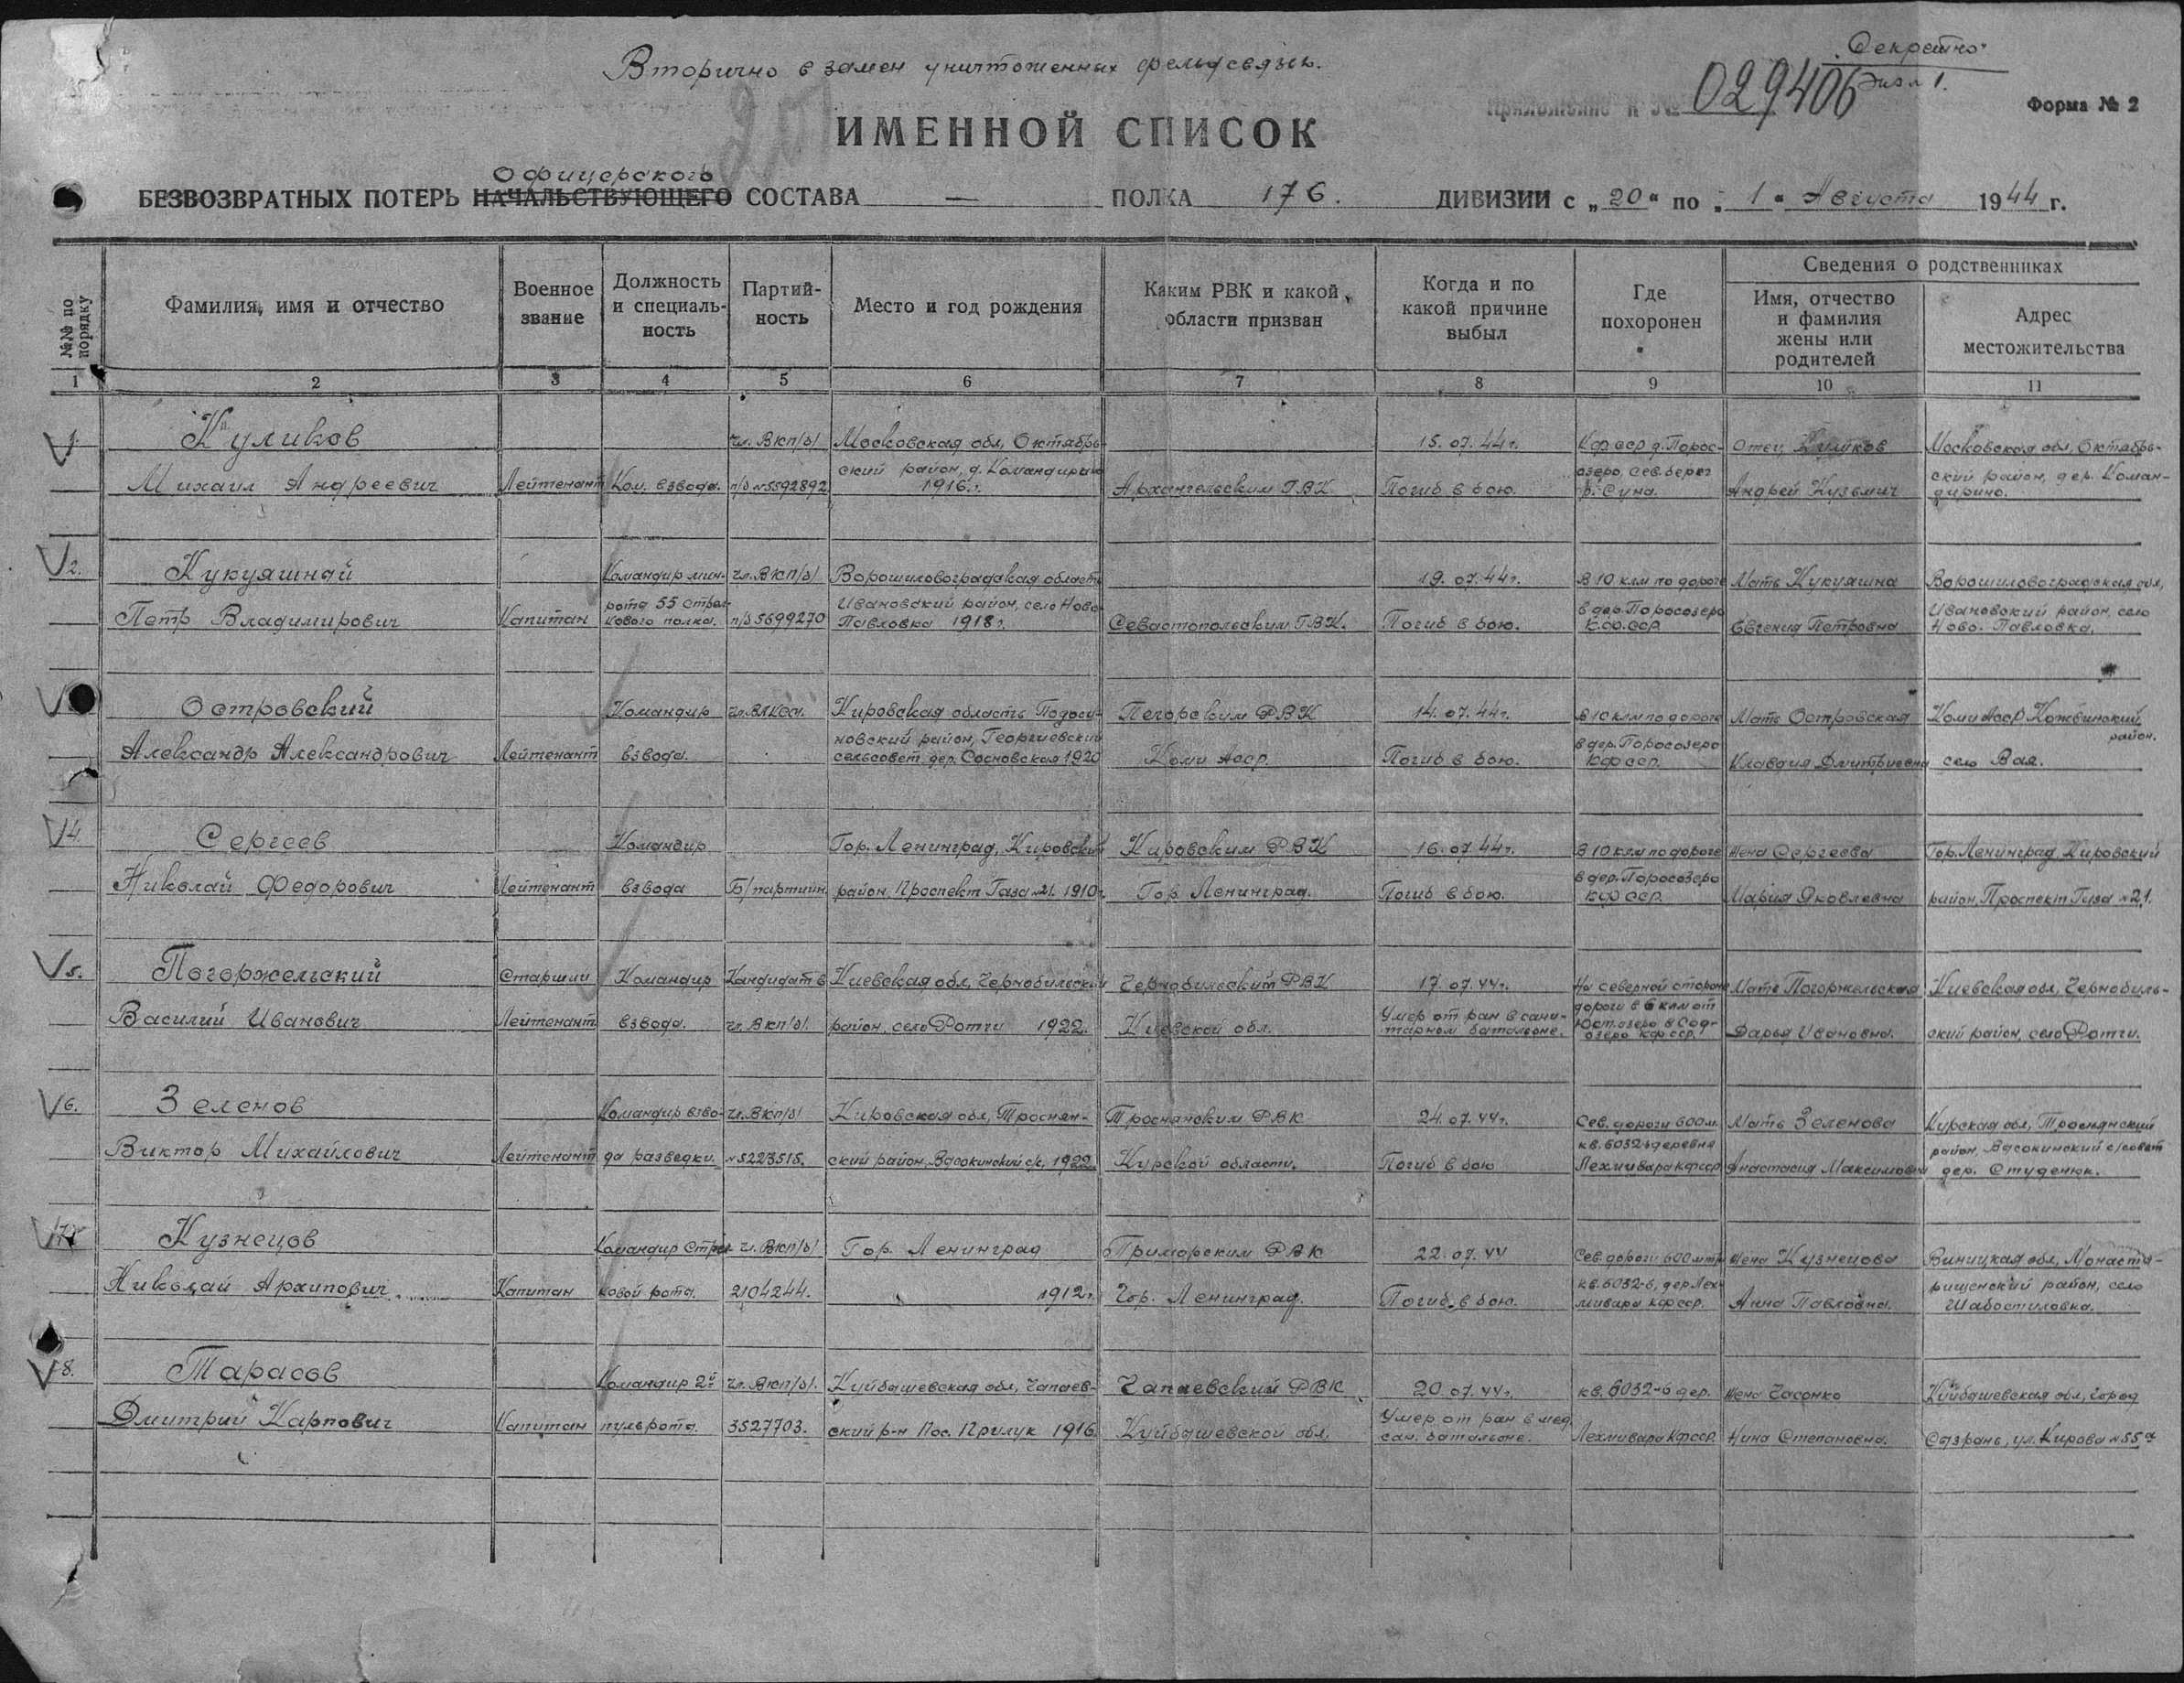 Секретно
Экз № 1.
Вторично в замен уничтоженных фельдсвязью.
Приложение к № 029406
Форма № 2
ИМЕННОЙ СПИСОК
Офицерского
БЕЗВОЗВРАТНЫХ ПОТЕРЬ НАЧАЛЬСТВУЮЩЕГО СОСТАВА — ПОЛКА 176. ДИВИЗИИ с „20“ по „1“ Августа 1944 г.
№№ по порядку
Фамилия, имя и отчество
Военное звание
Должность и специальность
Партийность
Место и год рождения
Каким РВК и какой области призван
Когда и по какой причине выбыл
Где похоронен
Сведения о родственниках
Имя, отчество и фамилия жены или родителей
Адрес местожительства
1 2 3 4 5 6 7 8 9 10 11
1. Куликов чл. ВКП/б/ Московская обл, Октябрь- 15.07.44г. КФССР д. Порос- Отец Куликов Московская обл, Октябрь-
Михаил Андреевич Лейтенант Ком. взвода. п/б №5592892 ский район, д. Командирино 1916г. Архангельским ГВК Погиб в бою. озеро, сев. берег р. Суна. Андрей Кузьмич ский район, дер. Коман-
дирино.
2. Кукуяшный Командир мин- чл. ВКП/б/ Ворошиловоградская область 19.07.44г. В 10 клм по дороге Мать Кукуяшна Ворошиловоградская обл,
Петр Владимирович Капитан рота 55 стрел- п/б 5699270 Ивановский район, село Ново Севастопольским ГВК. Погиб в бою. в дер. Поросозеро Евгения Петровна Ивановский район, село
кового полка. Павловка 1918г. КФССР Ново-Павловка.
Островский Командир чл. ВЛКСМ. Кировская область Подоси- Печорским РВК 14.07.44г. В 10 клм по дороге Мать Островская Коми АССР Кожвинский
район.
Александр Александрович Лейтенант взвода. новский район, Георгиевский Коми АССР. Погиб в бою. в дер. Поросозеро Клавдия Дмитриевна село Вая.
сельсовет дер. Сосновская 1920 КФССР.
4. Сергеев Командир Гор. Ленинград, Кировский Кировским РВК 16.07.44г. В 10 клм по дороге Жена Сергеева Гор. Ленинград, Кировский
Николай Федорович Лейтенант взвода Б/партийн. район, Проспект Газа №21. 1910г. Гор. Ленинград. Погиб в бою. в дер. Поросозеро КФССР. Мария Яковлевна район, Проспект Газа №21.
5. Погоржельский Старший Командир Кандидат в Киевская обл, Чернобильский Чернобильский РВК 17.07.44г. На северной стороне Мать Погоржельская Киевская обл, Чернобиль-
Василий Иванович Лейтенант взвода. чл. ВКП/б/. район, село Ротчи 1922. Киевской обл. Умер от ран в сани- дороги в 6 клм от Дарья Ивановна. ский район, село Ротчи.
тарном батальоне. Юстозеро в Соф-
озеро КФССР.
6. Зеленов Командир взво- чл. ВКП/б/ Кировская обл, Троснян- Троснянским РВК 24.07.44г. Сев. дороги 600 м. Мать Зеленова Курская обл, Троснянский
Виктор Михайлович Лейтенант да разведки. №5223515. ский район, Высокинский с/с, 1922 Курской области. Погиб в бою кв. 6032-б деревня Анастасия Максимовна район, Высокинский с/совет
Лехмивара КФССР дер. Студенюк.
7. Кузнецов Командир стрел- чл. ВКП/б/ Гор. Ленинград Приморским РВК 22.07.44 Сев. дороги 600 мтр Жена Кузнецова Виницкая обл, Монасты-
Николай Архипович Капитан ковой рота. 2104244. 1912г. Гор. Ленинград. Погиб в бою. кв. 6032-б, дер Лех- Анна Павловна. рищенский район, село
мивара КФССР. Шабостиловка.
8. Тарасов Командир 2й чл. ВКП/б/. Куйбышевская обл, Чапаев- Чапаевский РВК 20.07.44г. кв. 6032-б дер. Жена Часонко Куйбышевская обл, город
Дмитрий Карпович Капитан пульрота. 3527703. ский р-н Пос. Прилук 1916. Куйбышевской обл. Умер от ран в мед. Лехмивара КФССР. Нина Степановна. Сызрань, ул. Кирова №55а
сан. батальоне.